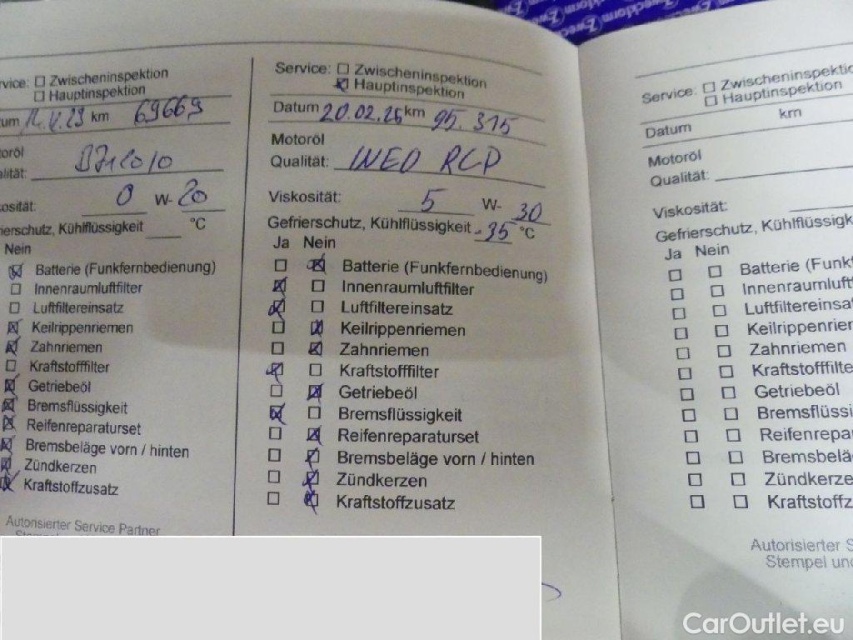 Zweckform
vice: Zwischeninspektion
Hauptinspektion
um 14.V.23 km 69669
oröl
lität: B712010
osität: 0 W- 20
ierschutz, Kühlflüssigkeit °C
Nein
Batterie (Funkfernbedienung)
Innenraumluftfilter
Luftfiltereinsatz
Keilrippenriemen
Zahnriemen
Kraftstofffilter
Getriebeöl
Bremsflüssigkeit
Reifenreparaturset
Bremsbeläge vorn / hinten
Zündkerzen
Kraftstoffzusatz
Autorisierter Service Partner
Service: Zwischeninspektion
Hauptinspektion
Datum 20.02.25 km 95.315
Motoröl
Qualität: INEO RCP
Viskosität: 5 W- 30
Gefrierschutz, Kühlflüssigkeit -35 °C
Ja Nein
Batterie (Funkfernbedienung)
Innenraumluftfilter
Luftfiltereinsatz
Keilrippenriemen
Zahnriemen
Kraftstofffilter
Getriebeöl
Bremsflüssigkeit
Reifenreparaturset
Bremsbeläge vorn / hinten
Zündkerzen
Kraftstoffzusatz
Service: Zwischeninspektio
Hauptinspektion
Datum km
Motoröl
Qualität:
Viskosität:
Gefrierschutz, Kühlflüssigk
Ja Nein
Batterie (Funk
Innenraumluft
Luftfiltereinsa
Keilrippenrier
Zahnriemen
Kraftstofffilte
Getriebeöl
Bremsflüssi
Reifenrepa
Bremsbelä
Zündkerze
Kraftstoffz
Autorisierter S
Stempel und
CarOutlet.eu